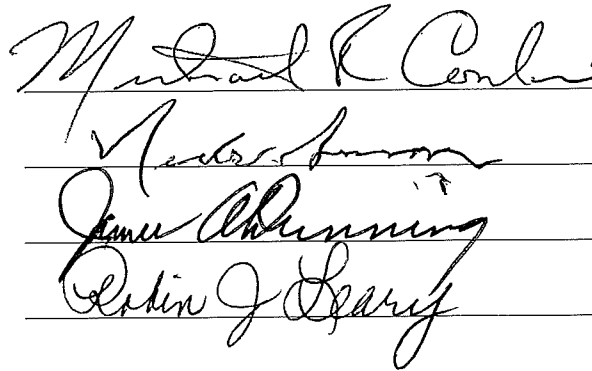 Michael R Conlin
James A Dunning
Robin J Leary